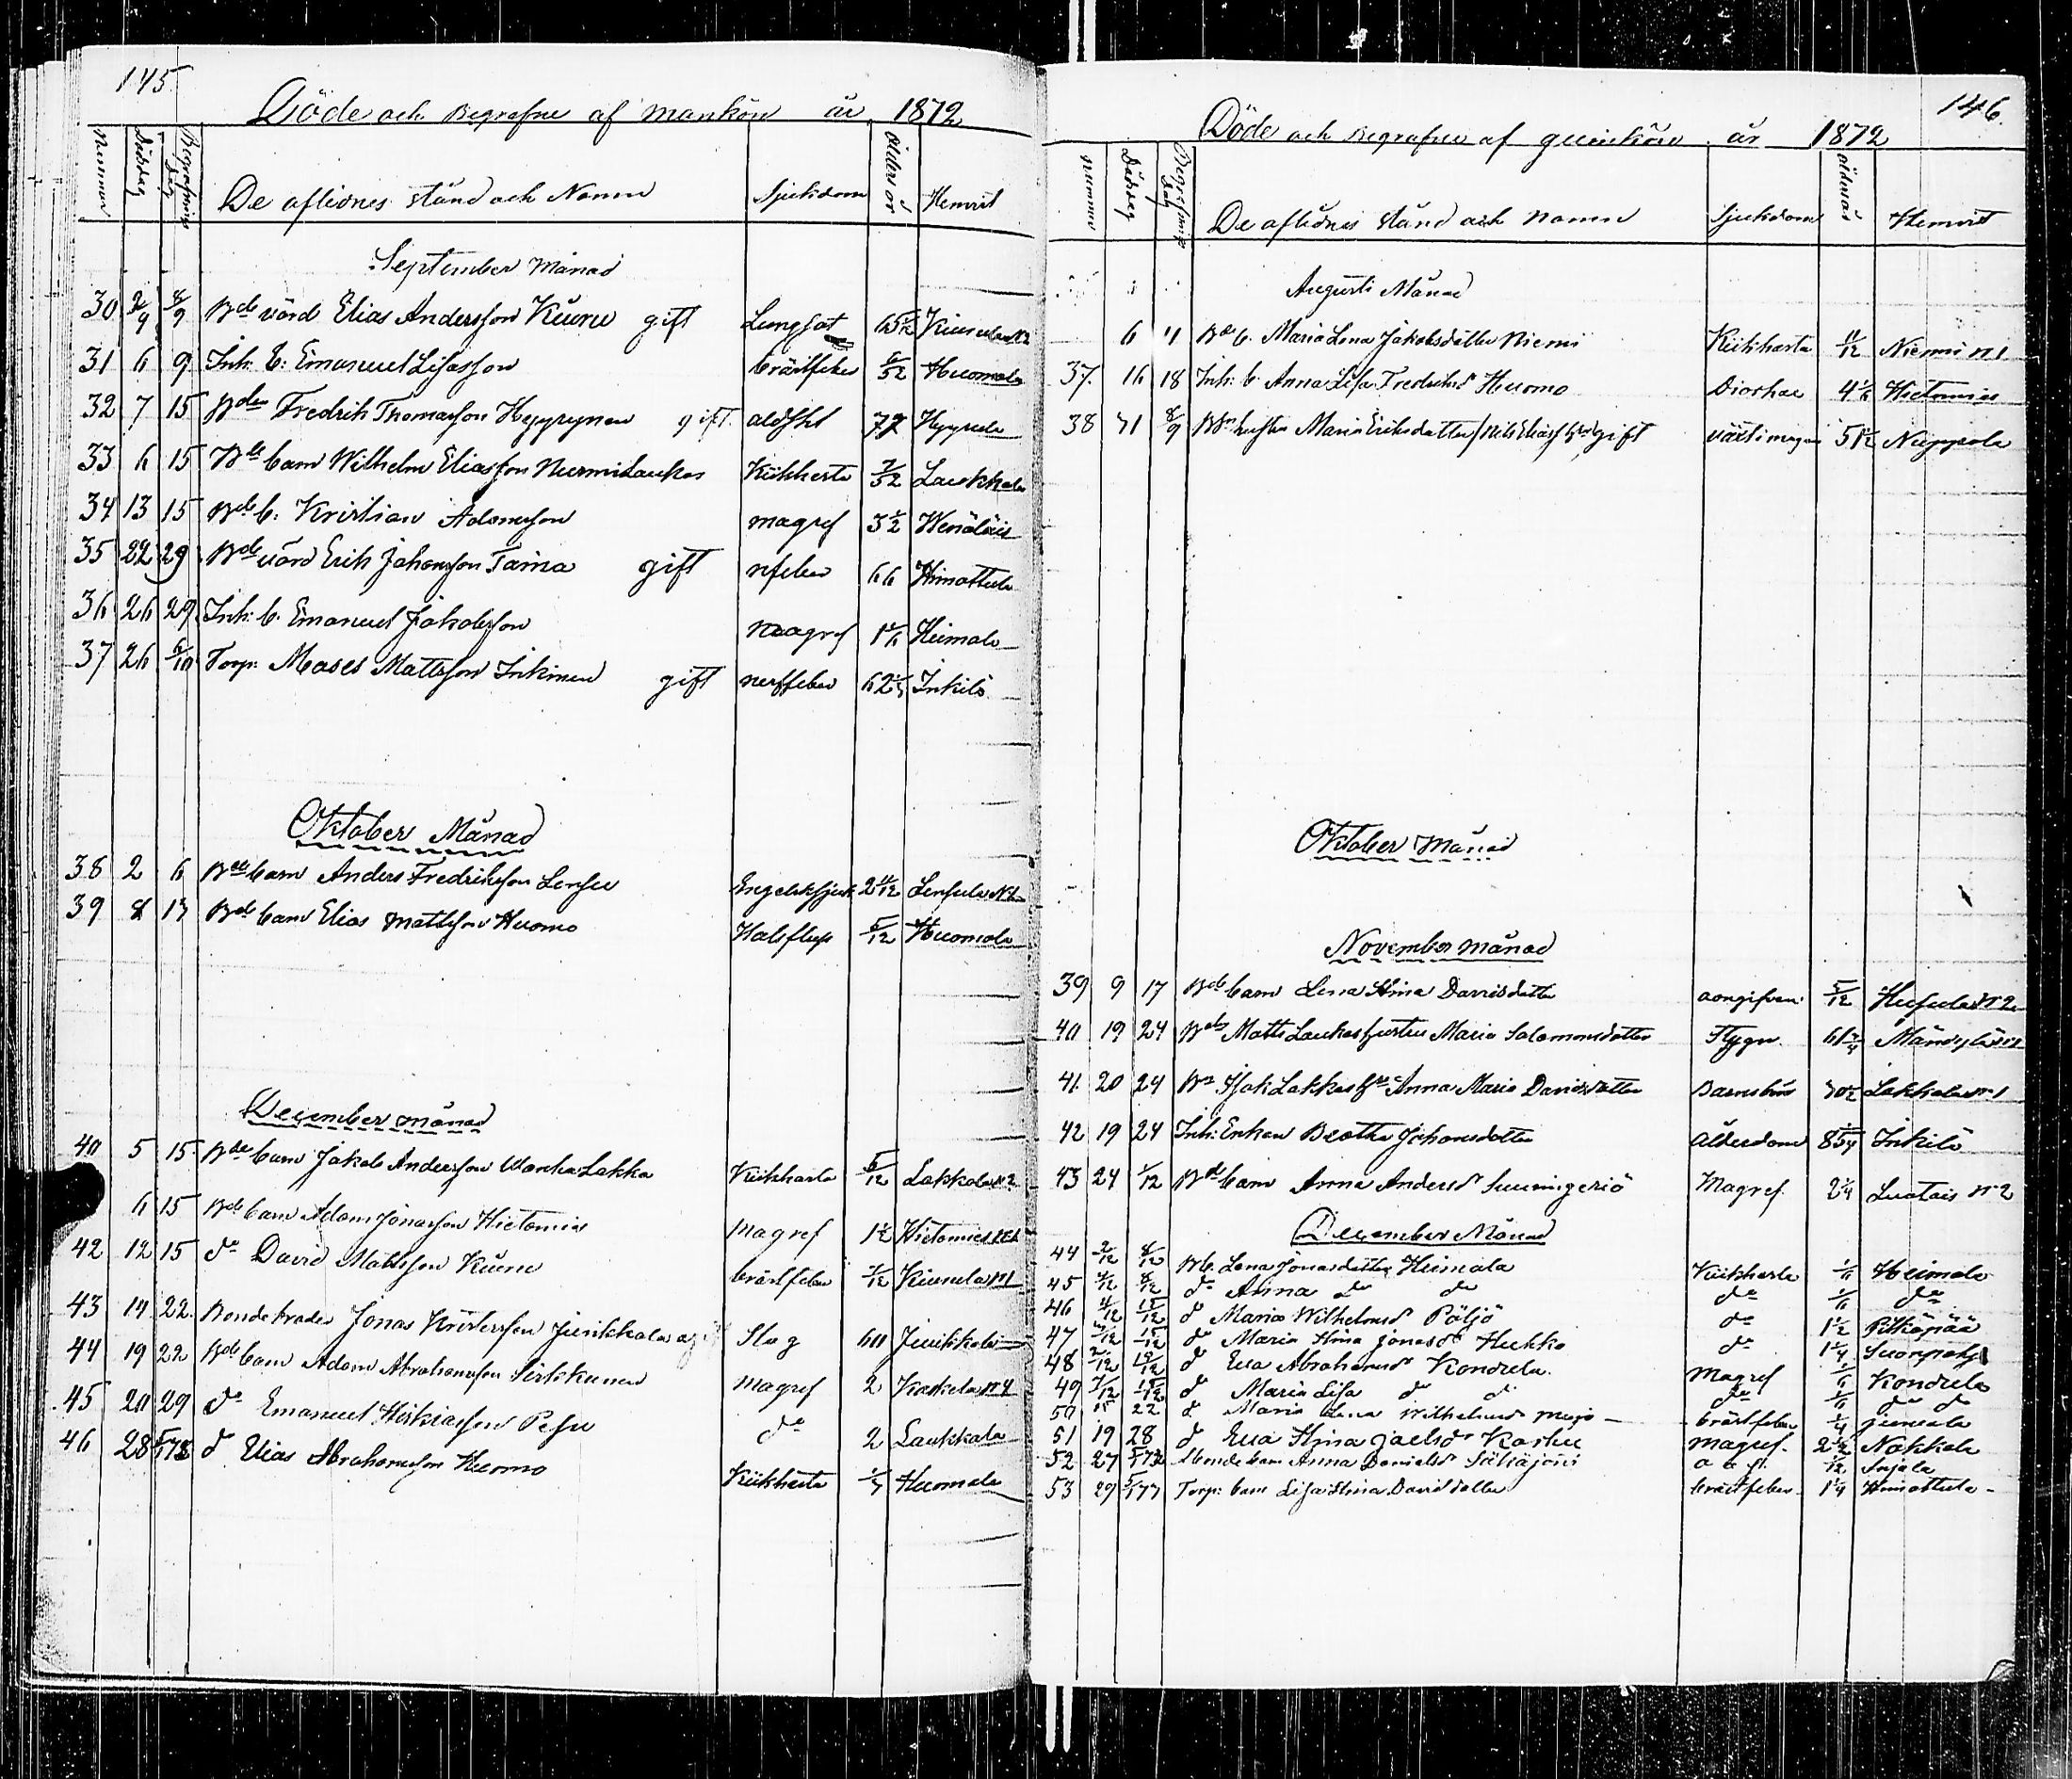 145.
Döde och Begrafne af Mankön år 1872
Nummer Dödsdag Begrafnings dag De aflidnes stånd och Namn Sjukdom Ålders år Hemvist
September Månad
30 2/9 8/9 Bde värd Elias Andersson Kiuru gift Lungsot 65 Kiurula
31 6 9 Inh: b: Emanuel Lisasson bröstfeber /52 Huomola
32 7 15 Bden Fredrik Thomasson Hyyrynen gift. åldskr 77 Hyyrylä
33 6 15 Bde barn Wilhelm Eliasson Nurmilaukas Kikhosta 7/52 Laukkala
34 13 15 Bde b: Kristian Adamsson magref 3 1/2 Wenäläis
35 22 29 Bde värd Erik Johansson Taina gift nfeber 66 Himottula
36 26 29 Inh: b. Emanuel Jakobsson magref 1 1/6 Heimala
37 26 6/10 Torp: Moses Mattsson Inkinen gift nerffeber 62 Inkilä
Oktober Månad
38 2 6 Bde barn Anders Fredriksson Lensu Engelsksjuk 2 11/12 Lensula N2
39 8 13 Bde barn Elias Mattsson Huomo Halsfluss 5/12 Huomola
December månad
40 5 15 Bde barn Jakob Andersson Lakka Kikhosta 5/12 Lakkala N2
6 15 Bde barn Adam Jonasson Hietamies Magref 1 1/2 Hietamies
42 12 15 do David Mattsson Kiuru bröstfeber 7/12 Kiurula N1
43 14 22 Bonde Jonas Kristersson Junikkala Slag 60 Junikkala
44 19 22 Bde barn Adam Abrahamsson Sirkkunen Magref 2 Kaskela N4
45 20 29 do Emanuel Heskiasson Pesu do 2 Laukkala
46 28 5/1 73 do Elias Abrahamsson Huomo Kikhosta Huomola
146.
Döde och Begrafne af quinkön år 1872
Nummer Dödsdag Begrafnings dag De aflidnes stånd och namn Sjukdom ålders år Hemvist
Augusti Månad
6 11 Bde b. Maria Lena Jakobsdotter Niemi Kikhosta 11/12 Niemi N1
37. 16 18 Inh: b Anna Lisa Fredriksd Huomo Diorhae 4 1/6 Hietamies
38 31 8/9 Maria Eriksdotter gift 51 Nuppola
Oktober Månad
November månad
39 9 17 Bde barn Lena Stina Davidsdotter oangifven 5/12 Husula N2
40 19 24 Bdes Matts Laukas hustru Maria Salomonsdotter Flygn. 61 3/4
41 20 24 Isak Lakkas Anna Maria Davidsdotter Barnsbörd 30 1/2 Lakkala N1
42 19 24 Inh: Enkan Beatha Johansdotter Ålderdom Inkilä
43 24 1/12 Bde barn Anna Andersdr Suuningeriö Magref. 2 1/4 Luotais N2
December Månad
44 2/12 8/12 Bb. Lena Jonasdotter Heimala Kikhosta 1/6 Heimala
45 4/12 8/12 do Anna do do do 1/6 do
46 4/12 15/12 do Maria Wilhelmsdr Päljö do 1 1/2 Pitkäpää
47 15/12 do Maria Stina Jonasdr Hukka do 1 1/4
48 /12 15/12 do Eva Abrahamsdr Kondula. Magref 1/6 Kondula
49 7/12 15/12 do Maria Lisa do do do 1/6 do do
50 15 22 do Maria Lena Wilhelmsd bröstfeber 1/4
51 19 28 do Eva Stina Joelsdr Karhu magref. 2 1/2 Nokkola
52 27 5/1 73 Bonde barn Anna Danielsd Säkäjärvi /12
53 29 5/1 73 Torp: barn Lisa Stina Davidsdotter bröstfeber 1 1/4 Himottula